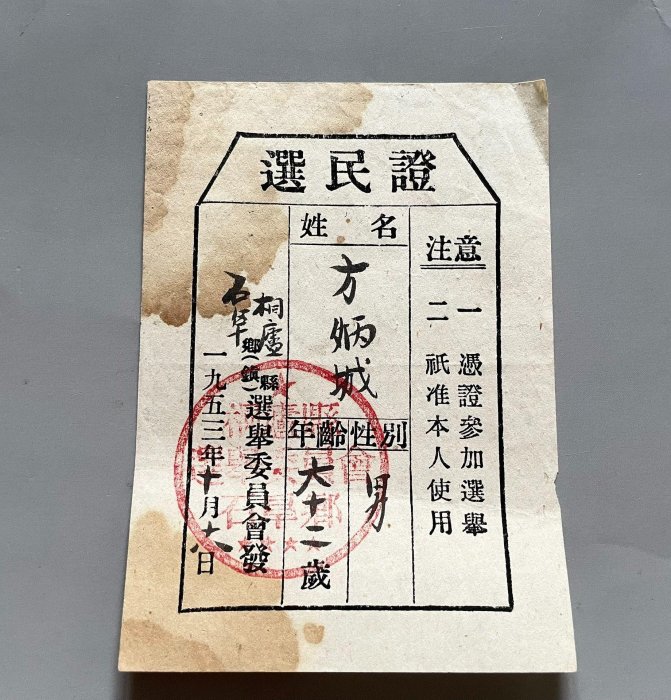 選民證
注意
一 憑證參加選舉
二 祇准本人使用
姓名
方炳城
性別
男
年齡
六十二歲
桐廬縣
石阜鄉(鎮)選舉委員會發
一九五三年十月十八日